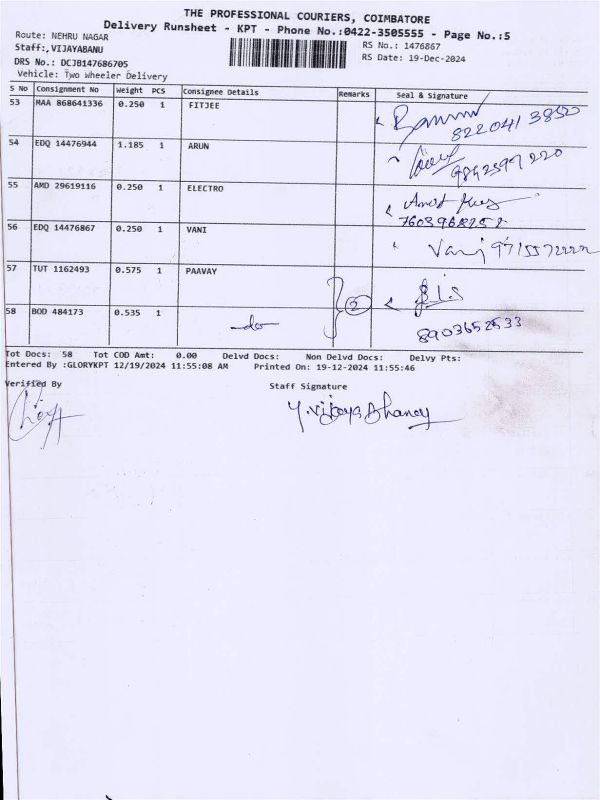 THE PROFESSIONAL COURIERS, COIMBATORE
Delivery Runsheet - KPT - Phone No.:0422-3505555 - Page No.:5
Route: NEHRU NAGAR
Staff:,VIJAYABANU
RS No.: 1476867
DRS No.: DCJB147686705
RS Date: 19-Dec-2024
Vehicle: Two Wheeler Delivery
S No Consignment No Weight PCS Consignee Details Remarks Seal & Signature
53 MAA 868641336 0.250 1 FITJEE
8220413850
54 EDQ 14476944 1.185 1 ARUN
9842597220
55 AMD 29619116 0.250 1 ELECTRO
7603968252
56 EDQ 14476867 0.250 1 VANI
Vani
57 TUT 1162493 0.575 1 PAAVAY
2
58 BOD 484173 0.535 1 -do-
8903652533
Tot Docs: 58 Tot COD Amt: 0.00 Delvd Docs: Non Delvd Docs: Delvy Pts:
Entered By :GLORYKPT 12/19/2024 11:55:08 AM Printed On: 19-12-2024 11:55:46
Verified By Staff Signature